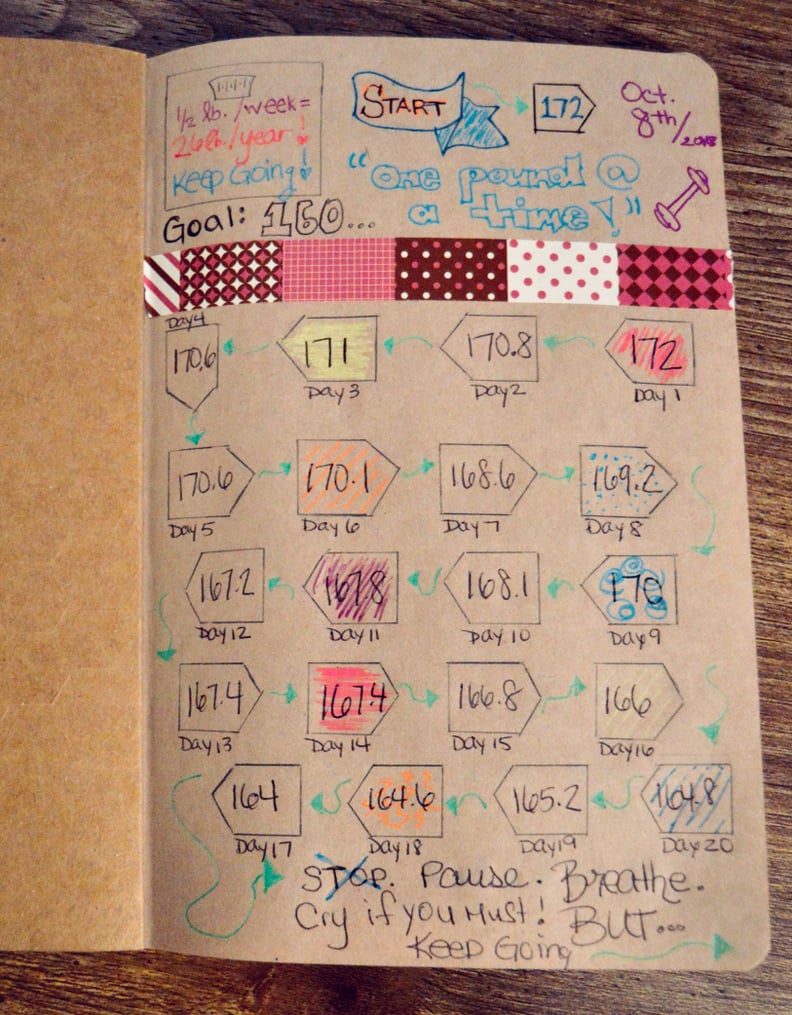 1/2 lb./week=
26lb./year!
Keep Going!
START
172
Oct.
8th/2018
"One pound @
a time!"
Goal: 160...
Day4
170.6
171
Day 3
170.8
Day2
172
Day 1
170.6
Day 5
170.1
Day 6
168.6
Day 7
169.2
Day 8
167.2
Day 12
167.8
Day 11
168.1
Day 10
170
Day 9
167.4
Day 13
167.4
Day 14
166.8
Day 15
166
Day16
164
Day17
164.6
Day 18
165.2
Day19
164.8
Day 20
STOP. Pause. Breathe.
Cry if you Must! BUT...
Keep Going